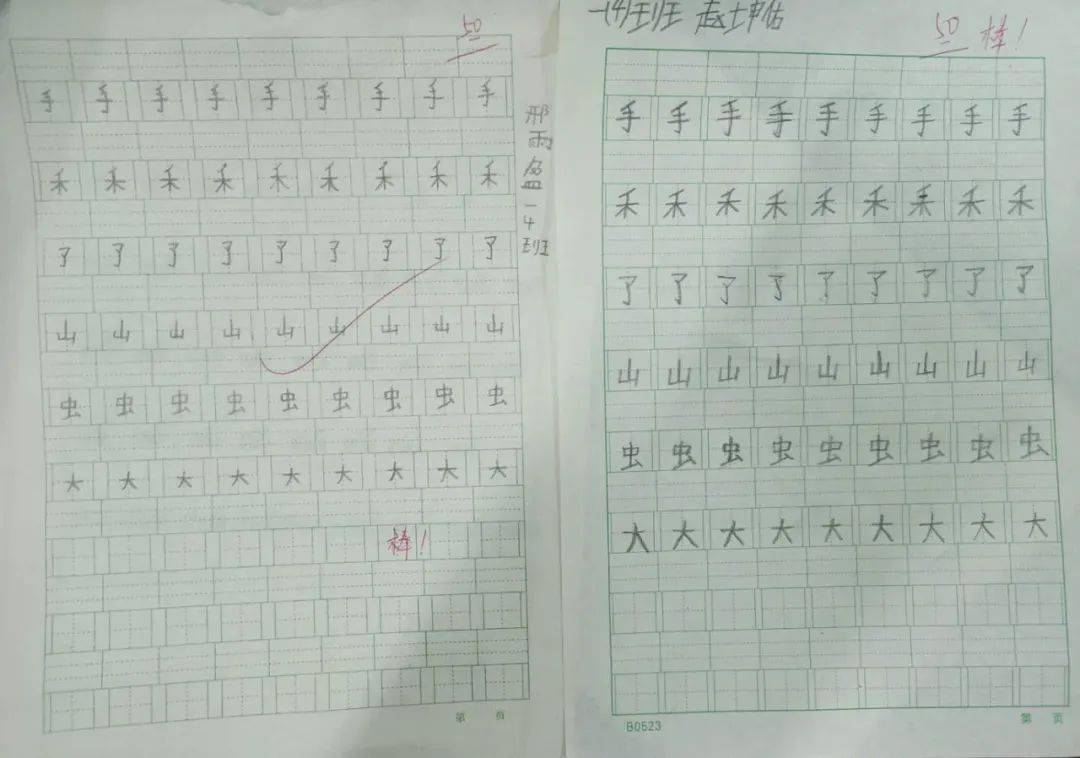 50
手 手 手 手 手 手 手 手 手
禾 禾 禾 禾 禾 禾 禾 禾 禾
了 了 了 了 了 了 了 了 了
山 山 山 山 山 山 山 山 山
虫 虫 虫 虫 虫 虫 虫 虫 虫
大 大 大 大 大 大 大 大 大
棒!
第 页
邢雨盈一4班
一(4)班 赵坤
50 棒!
手 手 手 手 手 手 手 手 手
禾 禾 禾 禾 禾 禾 禾 禾 禾
了 了 了 了 了 了 了 了 了
山 山 山 山 山 山 山 山 山
虫 虫 虫 虫 虫 虫 虫 虫 虫
大 大 大 大 大 大 大 大 大
B0523
第 页